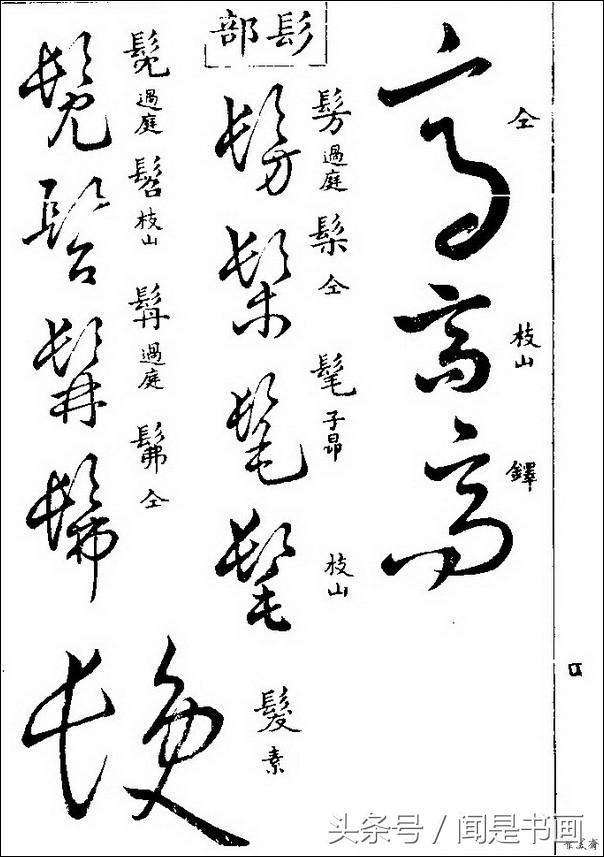 高 仝
高 枝山
高 鐸
髟部
髣 過庭
仝
髦 子昂
枝山
髮 素
過庭
髫 枝山
髯 過庭
髴 仝
头条号 / 闻是书画